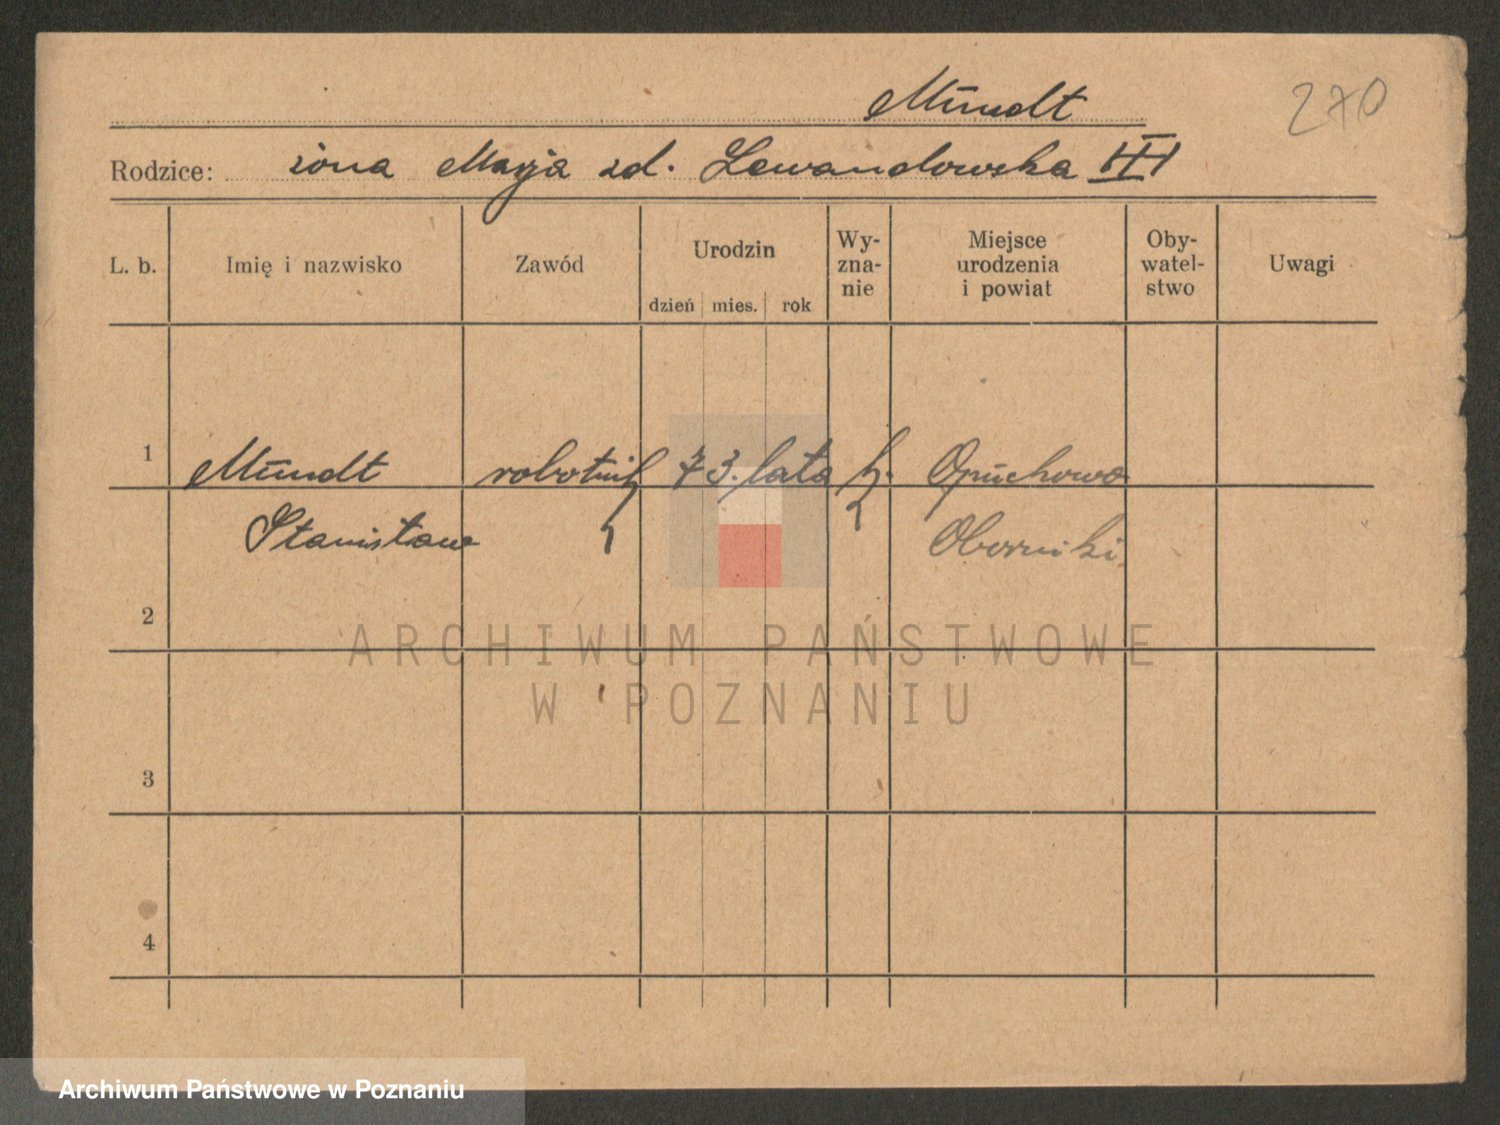 Mundt
270
Rodzice: żona Marja zd. Lewandowska III
L. b. Imię i nazwisko Zawód Urodzin dzień mies. rok Wy-zna-nie Miejsce urodzenia i powiat Oby-watel-stwo Uwagi
1 Mundt robotnik 73. lata k. Opuchowo
Stanisław Oborniki
2
ARCHIWUM PAŃSTWOWE
W POZNANIU
3
4
Archiwum Państwowe w Poznaniu